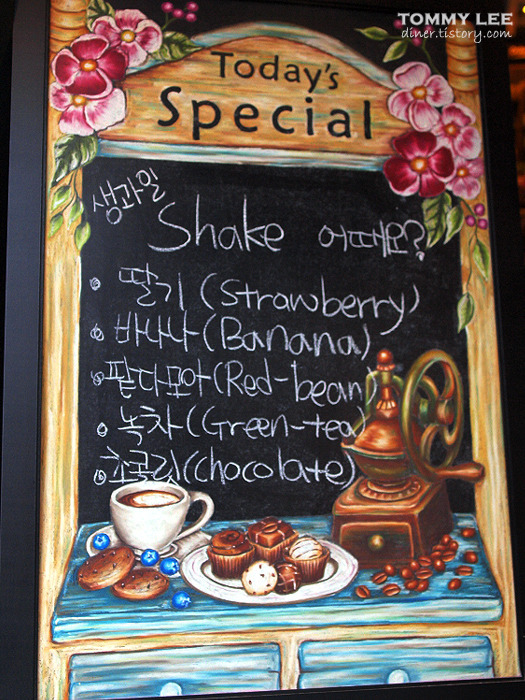 TOMMY LEE
diner.tistory.com
Today's
Special
생과일
Shake 어때요?
• 딸기 (Strawberry)
• 바나나 (Banana)
• 팥다모아 (Red-bean)
• 녹차 (Green-tea)
• 초콜릿 (Chocolate)